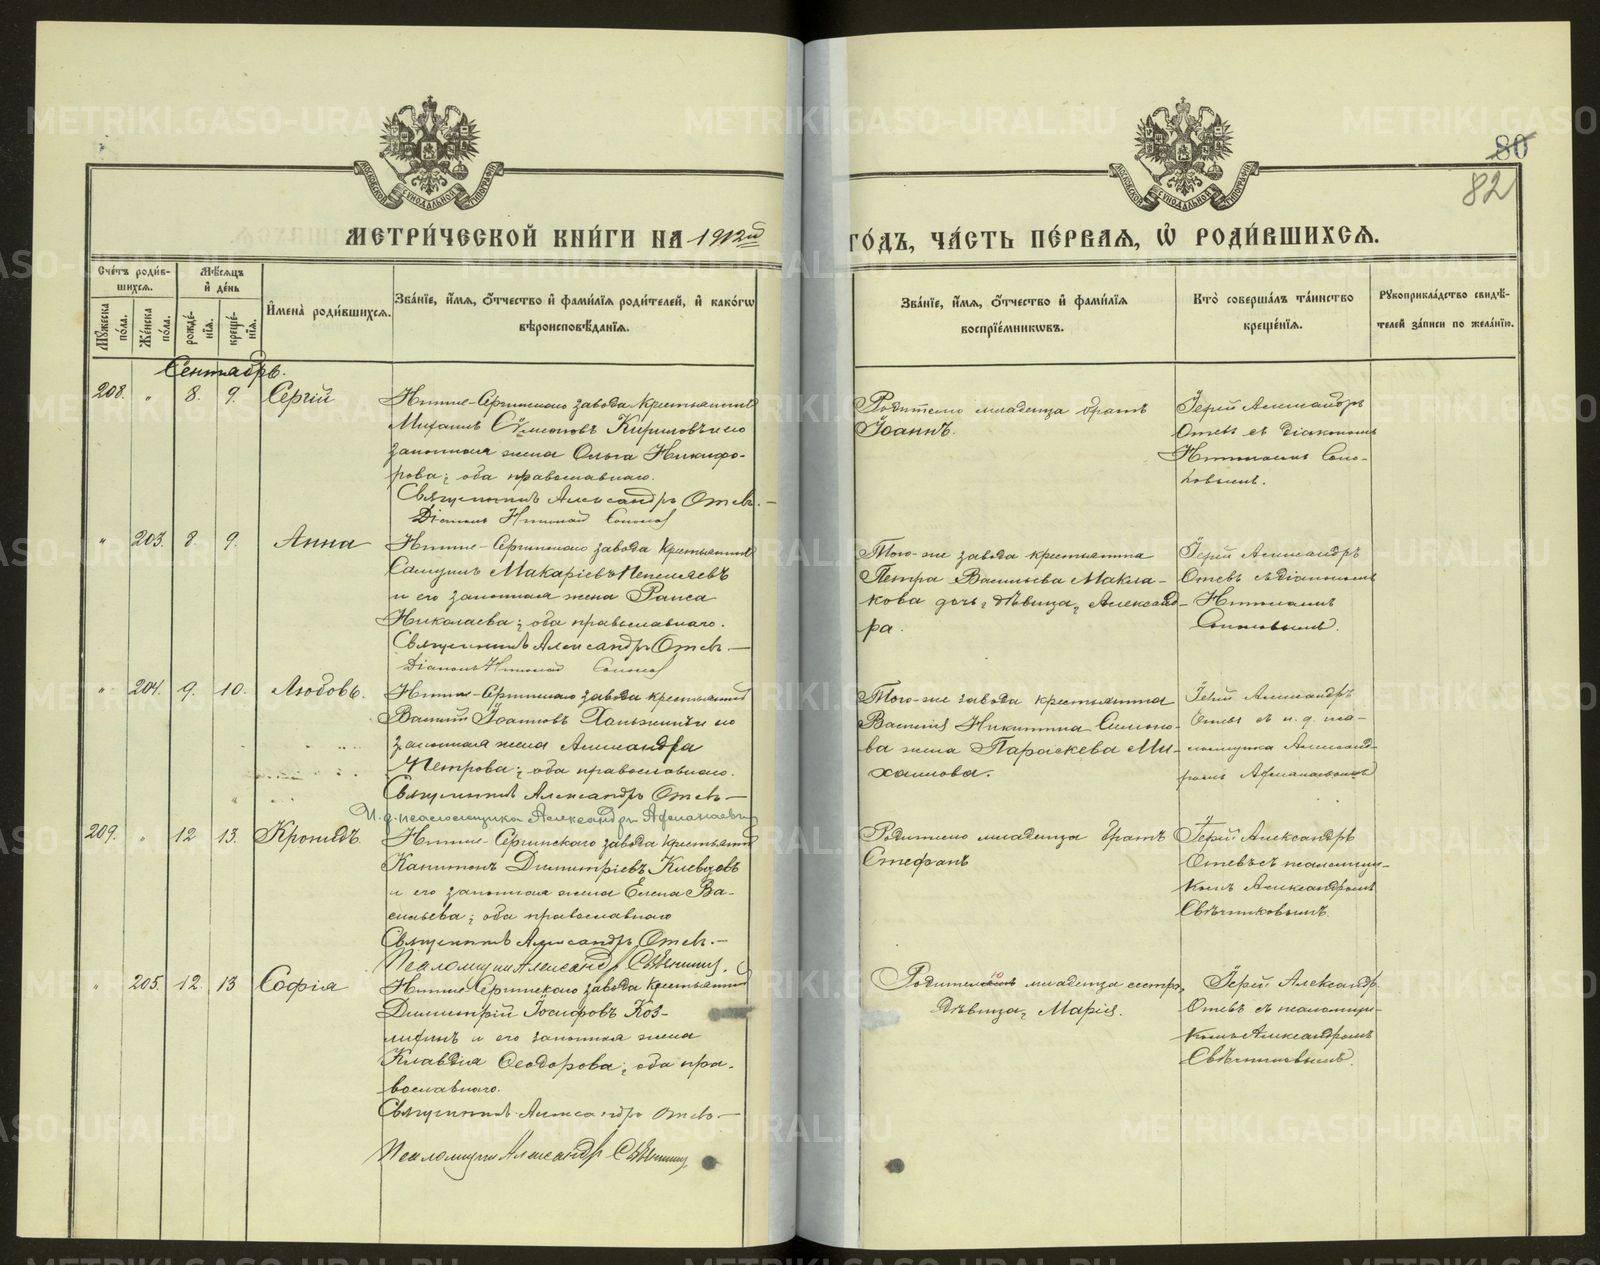 METRIKI.GASO-URAL.RU
80
82
МОСКОВСКОЙ СѴНОДАЛЬНОЙ ТИПОГРАФІИ
МЕТРИ́ЧЕСКОЙ КНИ́ГИ НА 1912й
ГО́ДЪ, ЧА́СТЬ ПЕ́РВАЯ, Ѡ҆ РОДИ́ВШИХСѦ.
Сче́тъ роди́в-
шихсѧ.
Мꙋжеска по́ла.
Же́нска по́ла.
Мѣ́сѧцъ
и҆ де́нь
рожде́-
нїѧ.
креще́-
нїѧ.
И҆мена̀ роди́вшихсѧ.
Зва́нїе, и҆́мѧ, ѻ҆́тчество и҆ фами́лїѧ роди́телей, и҆ како́гѡ
вѣроисповѣ́данїѧ.
Зва́нїе, и҆́мѧ, ѻ҆́тчество и҆ фами́лїѧ
воспрїе́мникѡвъ.
Кто̀ соверша́лъ та́инство
креще́нїѧ.
Рꙋкоприкла́дство свидѣ́-
телей за́писи по жела́нїю.
Сентябрь.
208. " 8. 9. Сергій
Нижне-Сергинскаго завода крестьянинъ
Михаилъ Сѵмеоновъ Кириловъ и его
законная жена Ольга Никифо-
рова; оба православнаго.
Священникъ Александръ Отевъ.—
Діаконъ Николай
Родителю младенца братъ
Іоаннъ.
Іерей Александръ
Отевъ съ діакономъ
Николаемъ
" 203. 8. 9. Анна
Нижне-Сергинскаго завода крестьянинъ
Самуилъ Макаріевъ Пепеляевъ
и его законная жена Раиса
Николаева; оба православнаго.
Священникъ Александръ Отевъ—
Діаконъ Николай
Того-же завода крестьянина
Петра Васильева Макла-
кова дочь, дѣвица, Александ-
ра.
Іерей Александръ
Отевъ съ діакономъ
Николаемъ
" 204. 9. 10. Любовь.
Нижне-Сергинскаго завода крестьянинъ
Василій Іоанновъ и его
законная жена Александра
Петрова; оба православнаго.
Священникъ Александръ Отевъ—
И. д. псаломщика Александръ Афанасьевъ
Того-же завода крестьянина
Василія Никитина Симоно-
ва жена Параскева Ми-
хаилова.
Іерей Александръ
Отевъ съ и. д. пса-
ломщика Александ-
ромъ Афанасьевымъ
209. " 12 13. Кронидъ
Нижне-Сергинскаго завода крестьянинъ
Капитонъ Димитріевъ Клевцовъ
и его законная жена Елена Ва-
сильева; оба православнаго
Священникъ Александръ Отевъ.—
Псаломщикъ Александръ Свѣчниковъ.
Родителю младенца братъ
Стефанъ
Іерей Александръ
Отевъ съ псаломщи-
комъ Александромъ
Свѣчниковымъ.
" 205. 12. 13 Софія
Нижне-Сергинскаго завода крестьянинъ
Димитрій Іосифовъ Коз-
лифинъ и его законная жена
Клавдія Ѳеодорова; оба пра-
вославнаго.
Священникъ Александръ Отевъ.—
Псаломщикъ Александръ Свѣчниковъ
Родителю младенца сестра,
дѣвица, Марія.
Іерей Александръ
Отевъ съ псаломщи-
комъ Александромъ
Свѣчниковымъ.